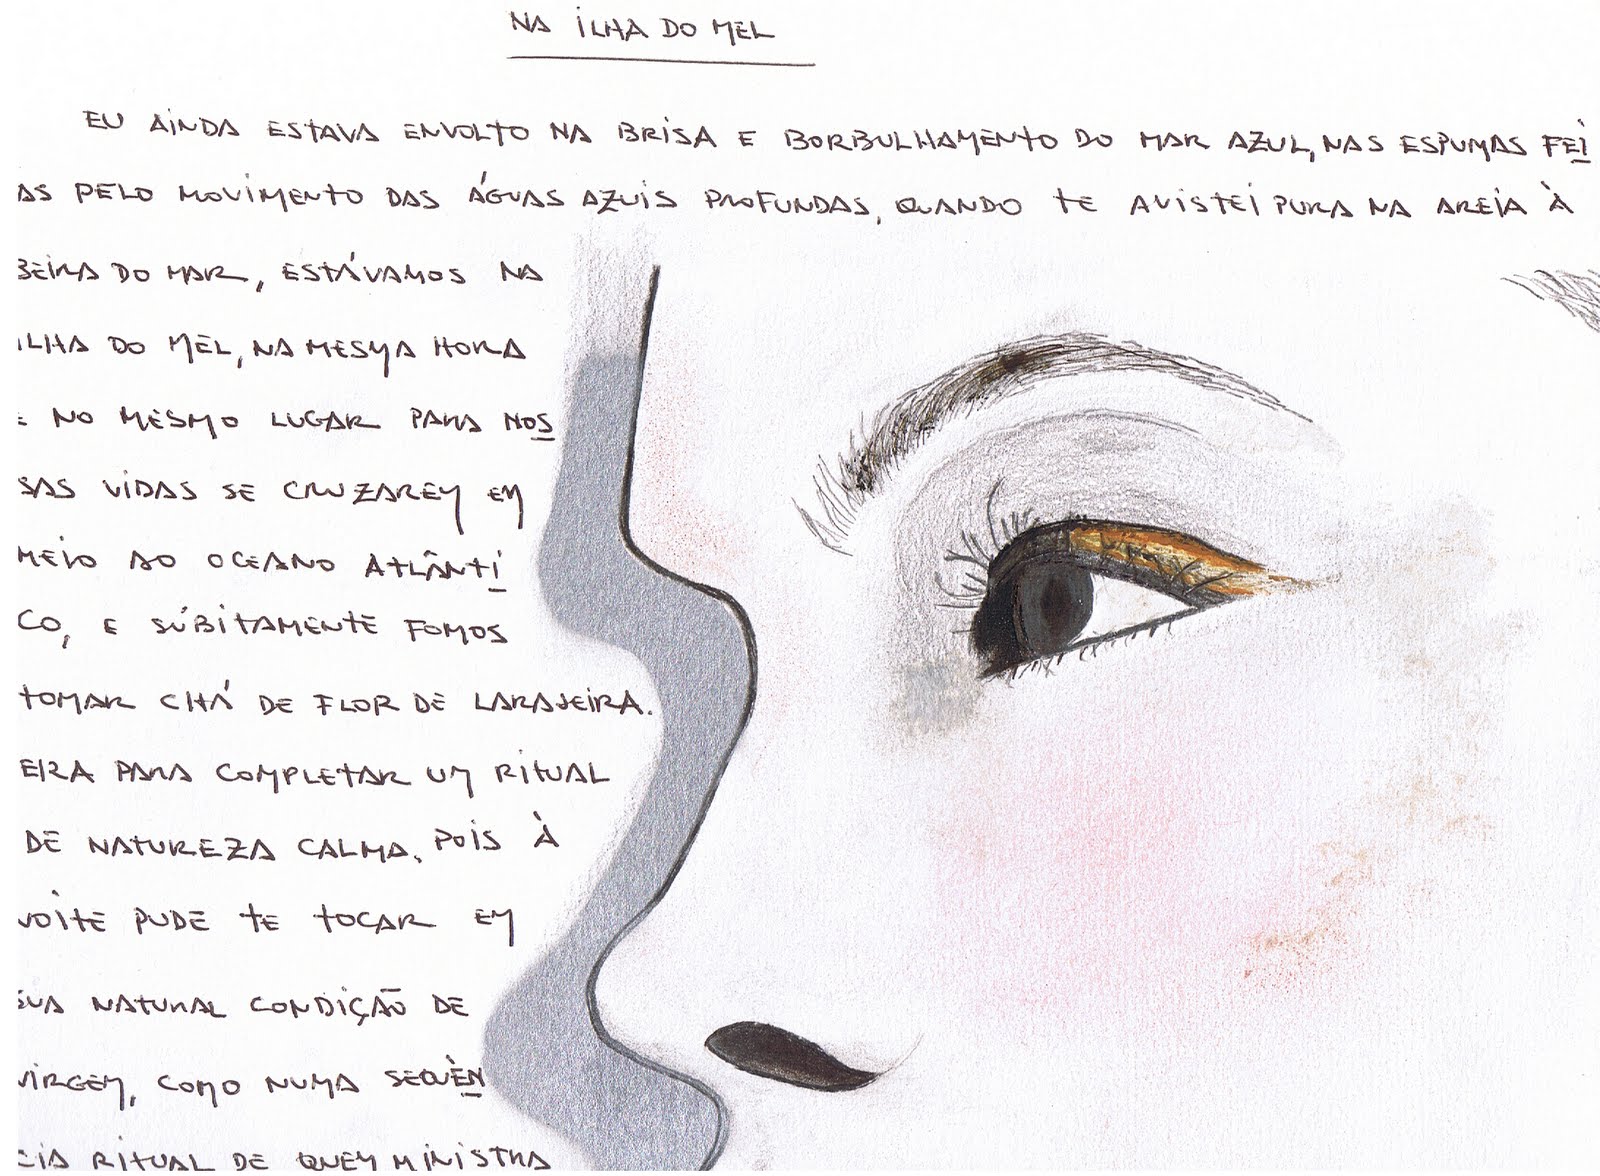 NA ILHA DO MEL
EU AINDA ESTAVA ENVOLTO NA BRISA E BORBULHAMENTO DO MAR AZUL, NAS ESPUMAS FEI
AS PELO MOVIMENTO DAS ÁGUAS AZUIS PROFUNDAS, QUANDO TE AVISTEI PURA NA AREIA À
BEIRA DO MAR, ESTÁVAMOS NA
ILHA DO MEL, NA MESMA HORA
E NO MESMO LUGAR PARA NOS
SAS VIDAS SE CRUZAREM EM
MEIO AO OCEANO ATLÂNTI
CO, E SÚBITAMENTE FOMOS
TOMAR CHÁ DE FLOR DE LARAJEIRA.
ERA PARA COMPLETAR UM RITUAL
DE NATUREZA CALMA. POIS À
NOITE PUDE TE TOCAR EM
SUA NATURAL CONDIÇÃO DE
VIRGEM, COMO NUMA SEQUÊN
CIA RITUAL DE QUEM MINISTRA